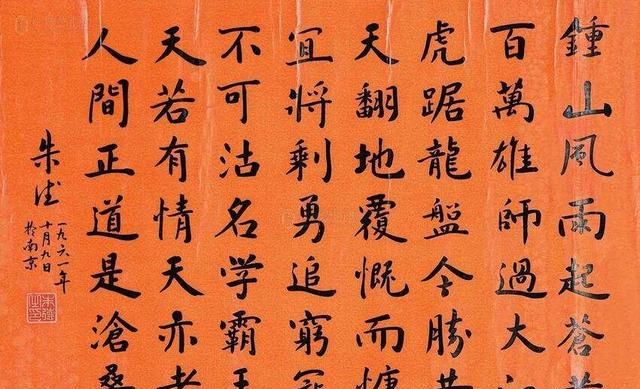 鍾山風雨起蒼
百萬雄師過大江
虎踞龍盤今勝昔
天翻地覆慨而慷
宜將剩勇追窮寇
不可沽名学霸王
天若有情天亦老
人間正道是滄桑
朱德
一九六一年
十月九日
於南京
朱德
之印